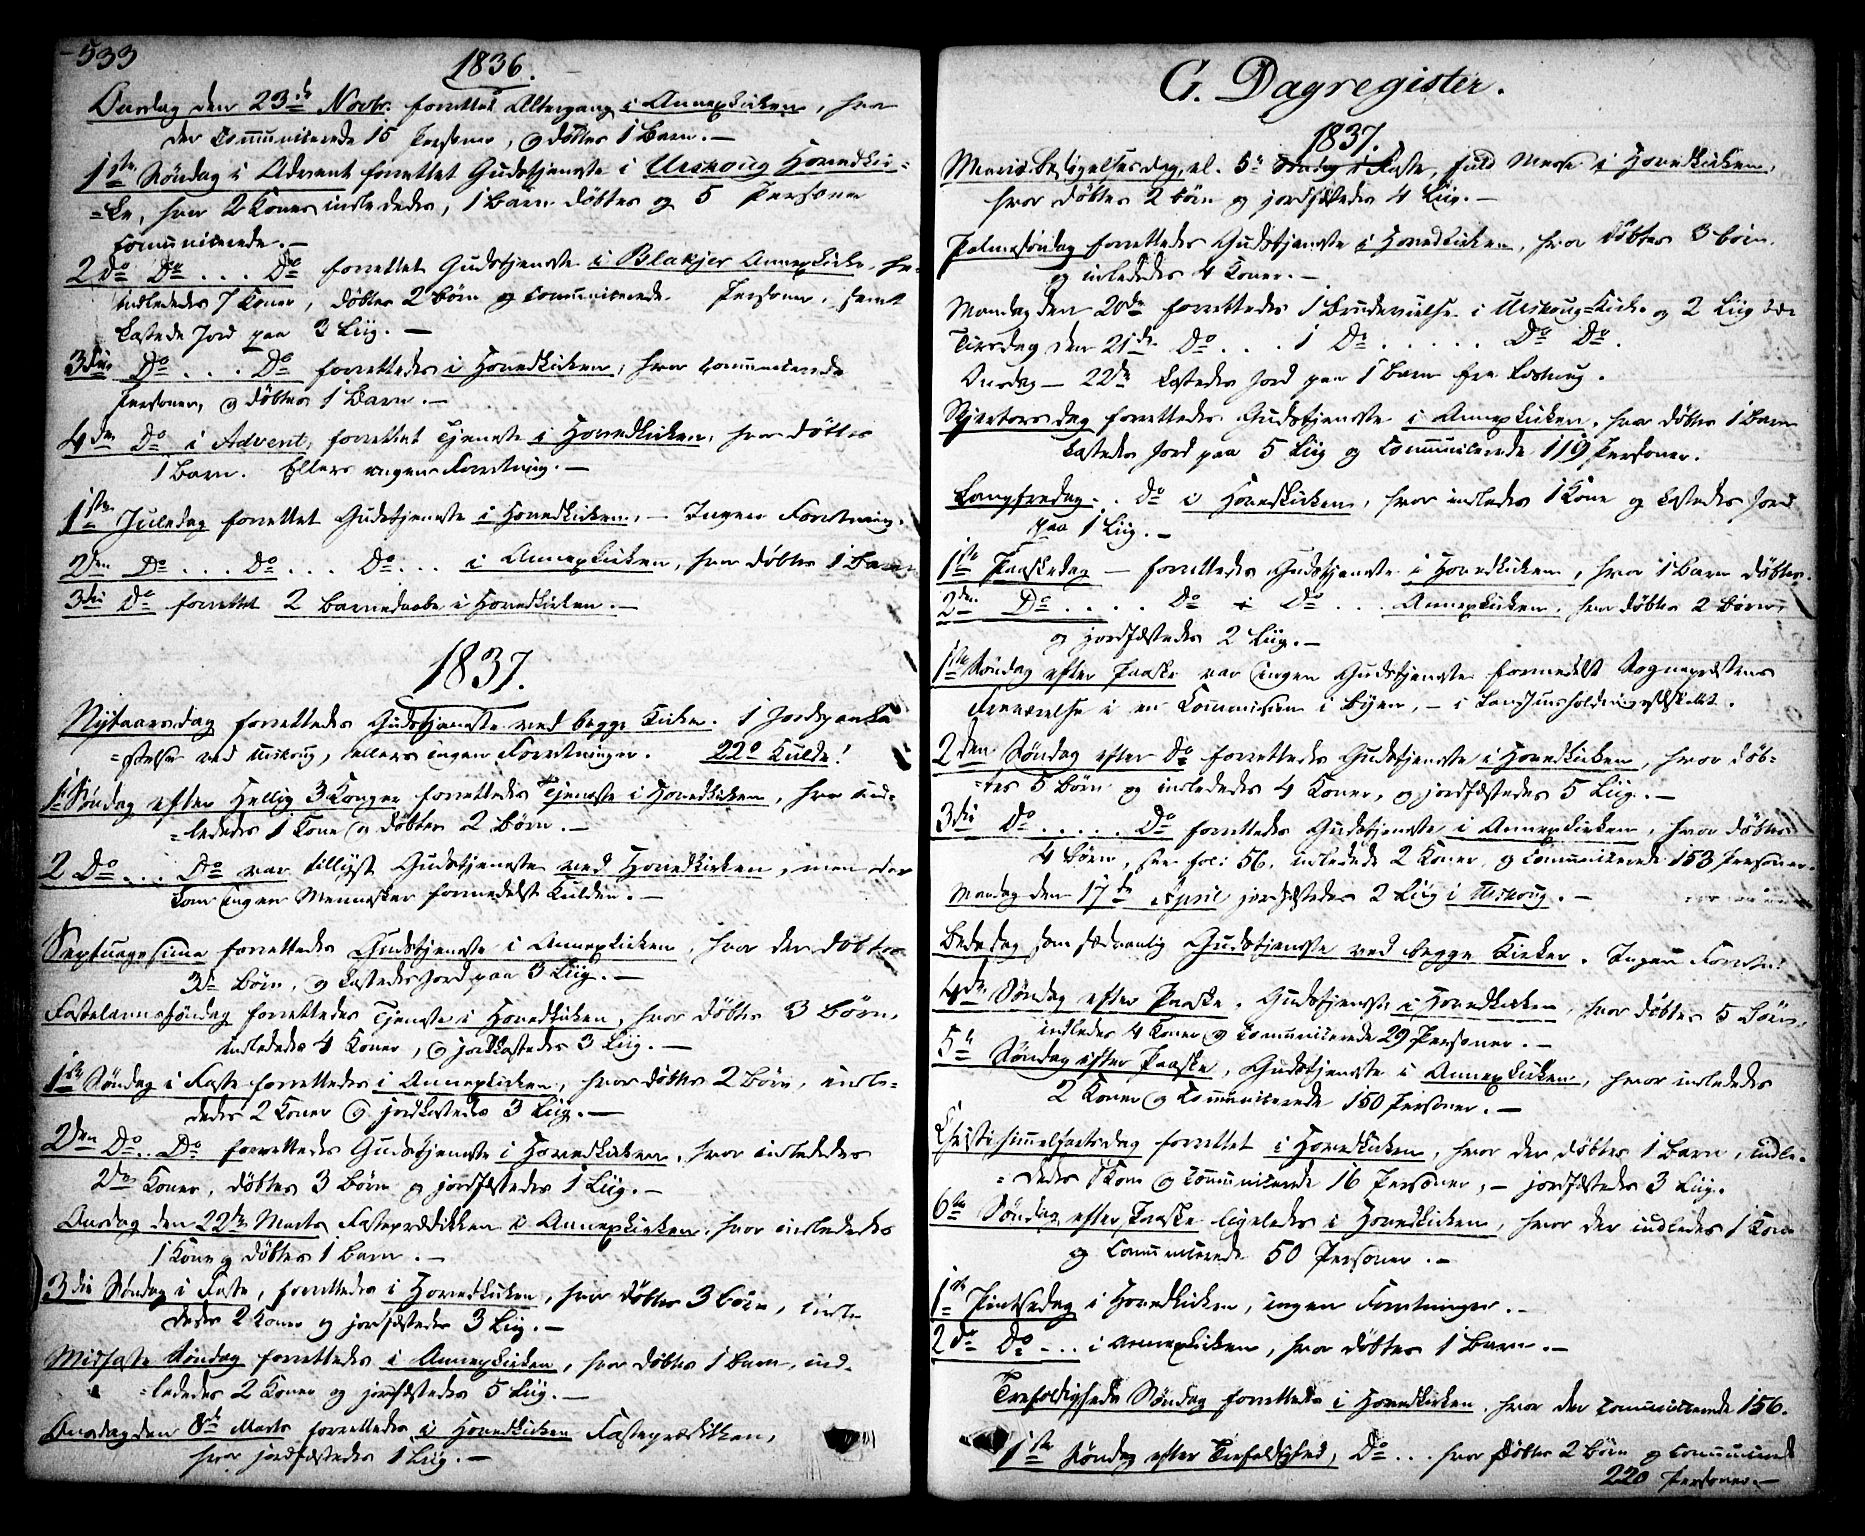 533
1836.
Onsdag den 23de Novbr. forrettet Altergang i Annexkirken, hvor
der communicerede 15 Personer, og døbtes 1 Barn. —
1ste Søndag i Advent forrettet Gudstjeneste i Urskoug Hovedkir=
=ke, hvor 2 Koner indlededes, 1 Barn døbtes og 5 Personer
communicerede. —
2do Do . . . Do forrettet Gudstjeneste i Blakjer Annexkirke, hv.
indlededes 7 Koner, døbtes 2 Børn og communicerede Personer, samt
kastede Jord paa 3 Liig. —
3die Do . . . Do forrettedes i Hovedkirken, hvor communicerede
Personer, og døbtes 1 Barn. —
4de Do i Advent, forrettet Tjeneste i Hovedkirken, hvor døbtes
1 Barn. Ellers ingen Forretning. —
1ste Juledag forrettet Gudstjeneste i Hovedkirken, — Ingen Forretning.
2den Do . . . Do . . . Do . . . i Annexkirken, hvor døbtes 1 Barn
3die Do forrettet 2 Barnedaabe i Hovedkirken. —
1837.
Nytaarsdag forrettedes Gudstjeneste ved begge Kirker. 1 Jordspaaka
=stelse ved Urskoug, ellers ingen Forretninger. 22o Kulde!
1ste Søndag efter Hellig 3 Konger forrettedes Tjeneste i Hovedkirken, hvor ind=
=lededes 1 Kone og døbtes 2 Børn. —
2 Do . . . Do var tillyst Gudstjeneste ved Hovedkirken, men der
kom ingen Mennesker formedelst Kulden. —
Septuagesima forrettedes Gudstjeneste i Annexkirken, hvor der døbtes
3de Børn, og kastedes Jord paa 3 Liig. —
Fastelavnssøndag forrettedes Tjeneste i Hovedkirken, hvor døbtes 3 Børn,
indlededes 4 Koner, og jordkastedes 3 Liig. —
1ste Søndag i Faste forrettedes i Annexkirken, hvor døbtes 2 Børn, indle=
dedes 2 Koner og jordkastedes 3 Liig. —
2den Do . . Do forrettedes Gudstjeneste i Hovedkirken, hvor indlededes
2de Koner, døbtes 3 Børn og jordfæstedes 1 Liig. —
Onsdag den 22de Marts Fasteprædikken i Annexkirken, hvor indlededes
1 Kone og døbtes 1 Barn. —
3die Søndag i Faste, forrettedes i Hovedkirken, hvor døbtes 3 Børn, indle=
dedes 2 Koner og jordfæstedes 3 Liig. —
Midfaste Søndag forrettedes i Annexkirken, hvor døbtes 1 Barn, ind=
=lededes 2 Koner og jordfæstedes 5 Liig. —
Onsdag den 8de Marts forrettedes i Hovedkirken Fasteprædikken,
hvor jordfæstedes 1 Liig. —
G. Dagregister.
1837.
Mariæ Besøgelsesdag, el. 5te Søndag i Faste, fuld Messe i Hovedkirken,
hvor døbtes 2 Børn og jordfæstedes 4 Liig. —
Palmesøndag forrettedes Gudstjeneste i Hovedkirken, hvor døbtes 3 Børn.
og indlededes 4 Koner. —
Mandag den 20de forrettedes 1 Brudevielse i Urskoug=Kirke og 2 Liig
Tirsdag den 21de Do . . . 1 Do . . . . . . Do Do.
Onsdag — 22de kastedes Jord paa 1 Barn fra
Skjertorsdag forrettedes Gudstjeneste i Annexkirken, hvor døbtes 1 Barn
kastedes Jord paa 5 Liig og communicerede 119 Personer.
Langfredag . . Do i Hovedkirken, hvor indledes 1 Kone og kastedes Jord
paa 1 Liig. —
1ste Paaskedag — forrettedes Gudstjeneste i Hovedkirken, hvor 1 Barn døbtes.
2den Do . . . . Do i Do . . . Annexkirken, hvor døbtes 2 Børn,
og jordfæstedes 2 Liig. —
1ste Søndag efter Paaske var ingen Gudstjeneste formedelst Sognepræstens
Nærværelse i en Commission i Byen, — i Landhusholdningsselskabet.
2den Søndag efter Do forrettedes Gudstjeneste i Hovedkirken, hvor døb=
=tes 5 Børn og indlededes 4 Koner, og jordfæstedes 5 Liig. —
3die Do . . . . . Do forrettedes Gudstjeneste i Annexkirken, hvor døbtes
4 Børn, see fol: 56, indledede 2 Koner, og communicerede 153 Personer.
Mandag den 17de April jordfæstedes 2 Liig i Urskoug. —
Bededag som sædvanlig Gudstjeneste ved begge Kirker. Ingen Forretn:
4de Søndag efter Paaske, Gudstjeneste i Hovedkirken, hvor døbtes 5 Børn,
indledes 4 Koner og communicerede 29 Personer. —
5te Søndag efter Paaske, Gudstjeneste i Annexkirken, hvor indlededes
2 Koner og communicerede 150 Personer. —
Christi Himmelfartsdag forrettet i Hovedkirken, hvor der døbtes 1 Barn, indle=
=dedes 1 Kone og communicerede 16 Personer, — jordfæstedes 3 Liig.
6te Søndag efter Paaske ligeledes i Hovedkirken, hvor der indledes 1 Kone
og communicerede 50 Personer. —
1ste Pintsedag i Hovedkirken, ingen Forretninger. —
2de Do . . . i Annexkirken, hvor døbtes 1 Barn. —
Trefoldigheds Søndag forrettedes i Hovedkirken, hvor der communicerede 156.
1ste Søndag efter Trefoldighed, Do . . . hvor døbtes 2 Børn og communicerede
220 Personer. —